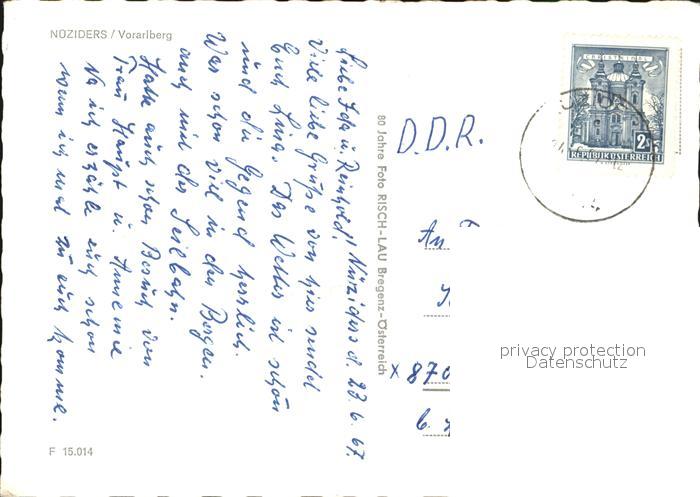 NÜZIDERS / Vorarlberg
Liebe Feta u. Reinhold! Nüziders d. 23.6.67.
Viele liebe Grüße von hier sendet
Euch Lina. Das Wetter ist schön
und die Gegend herrlich.
War schon viel in den Bergen.
auch mit der Seilbahn.
Hatte auch schon Besuch von
Frau Haupt u. Annemie
Na ich erzähle euch schon
wenn ich mal zu euch komme.
F 15.014
80 Jahre Foto RISCH-LAU Bregenz-Österreich
CHRISTKINDL
2S
REPUBLIK ÖSTERREICH
D.D.R.
An F
x 870
b.
privacy protection
Datenschutz